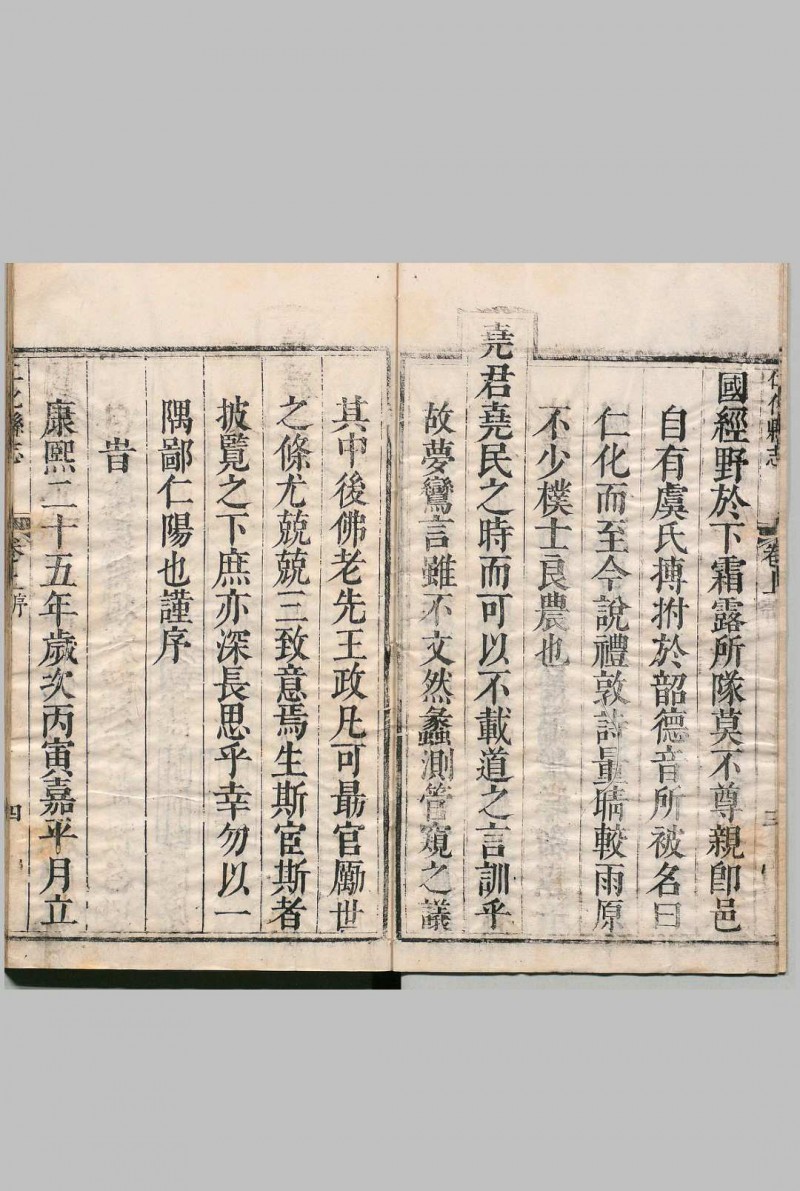 仁化縣志
卷上
三
國經野於下霜露所隊莫不尊親卽邑
自有虞氏搏拊於韶德音所被名曰
仁化而至今說禮敦詩量晴較雨原
不少樸士良農也
堯君堯民之時而可以不載道之言訓乎
故夢鸞言雖不文然蠡測管窺之議
其中後佛老先王政凡可最官勵世
之條尤兢兢三致意焉生斯宦斯者
披覽之下庶亦深長思乎幸勿以一
隅鄙仁陽也謹序
旹
康熙二十五年歲次丙寅嘉平月立
仁化縣志
卷上序
四